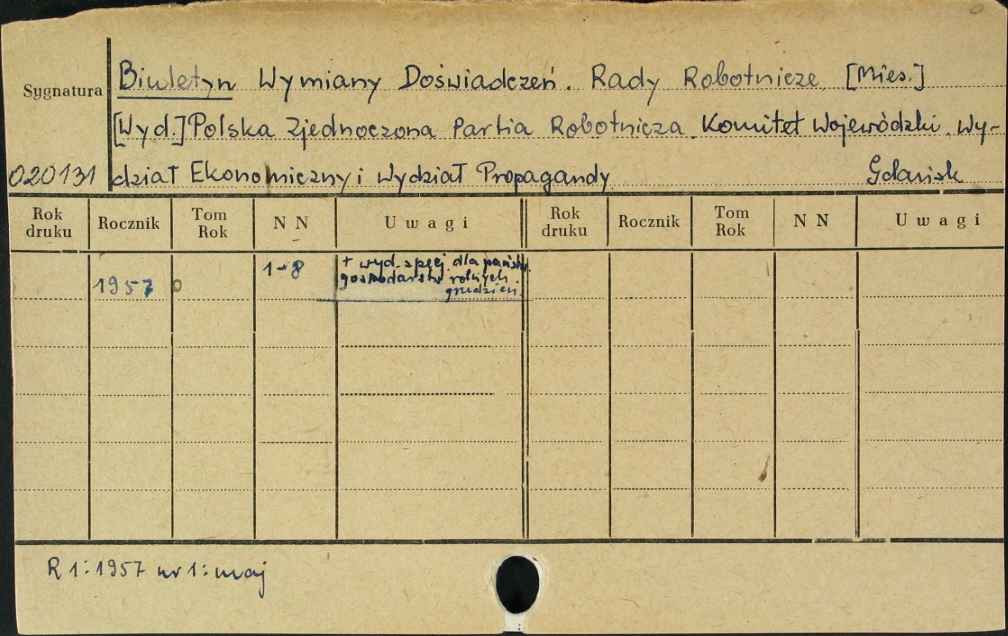 Sygnatura
Biuletyn Wymiany Doświadczeń. Rady Robotnicze. [Mies.]
[Wyd.] Polska Zjednoczona Partia Robotnicza. Komitet Wojewódzki. Wy-
020131 dział Ekonomiczny i Wydział Propagandy Gdańsk
Rok druku Rocznik Tom Rok NN Uwagi Rok druku Rocznik Tom Rok NN Uwagi
1957 1-8 + wyd. spec. dla państw.
gospodarstw rolnych.
grudzień.
R 1: 1957 nr 1: maj